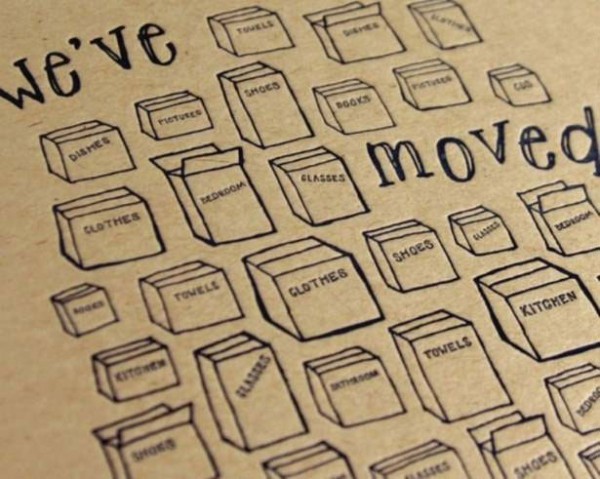 we've
TOWELS
DISHES
CLOTHES
DISHES
PICTURES
SHOES
BOOKS
PICTURES
moved
CLOTHES
BEDROOM
GLASSES
SHOES
GLASSES
BEDROOM
BOOKS
TOWELS
CLOTHES
KITCHEN
KITCHEN
GLASSES
BATHROOM
TOWELS
BEDROO
SHOES
GLASSES
SHOES